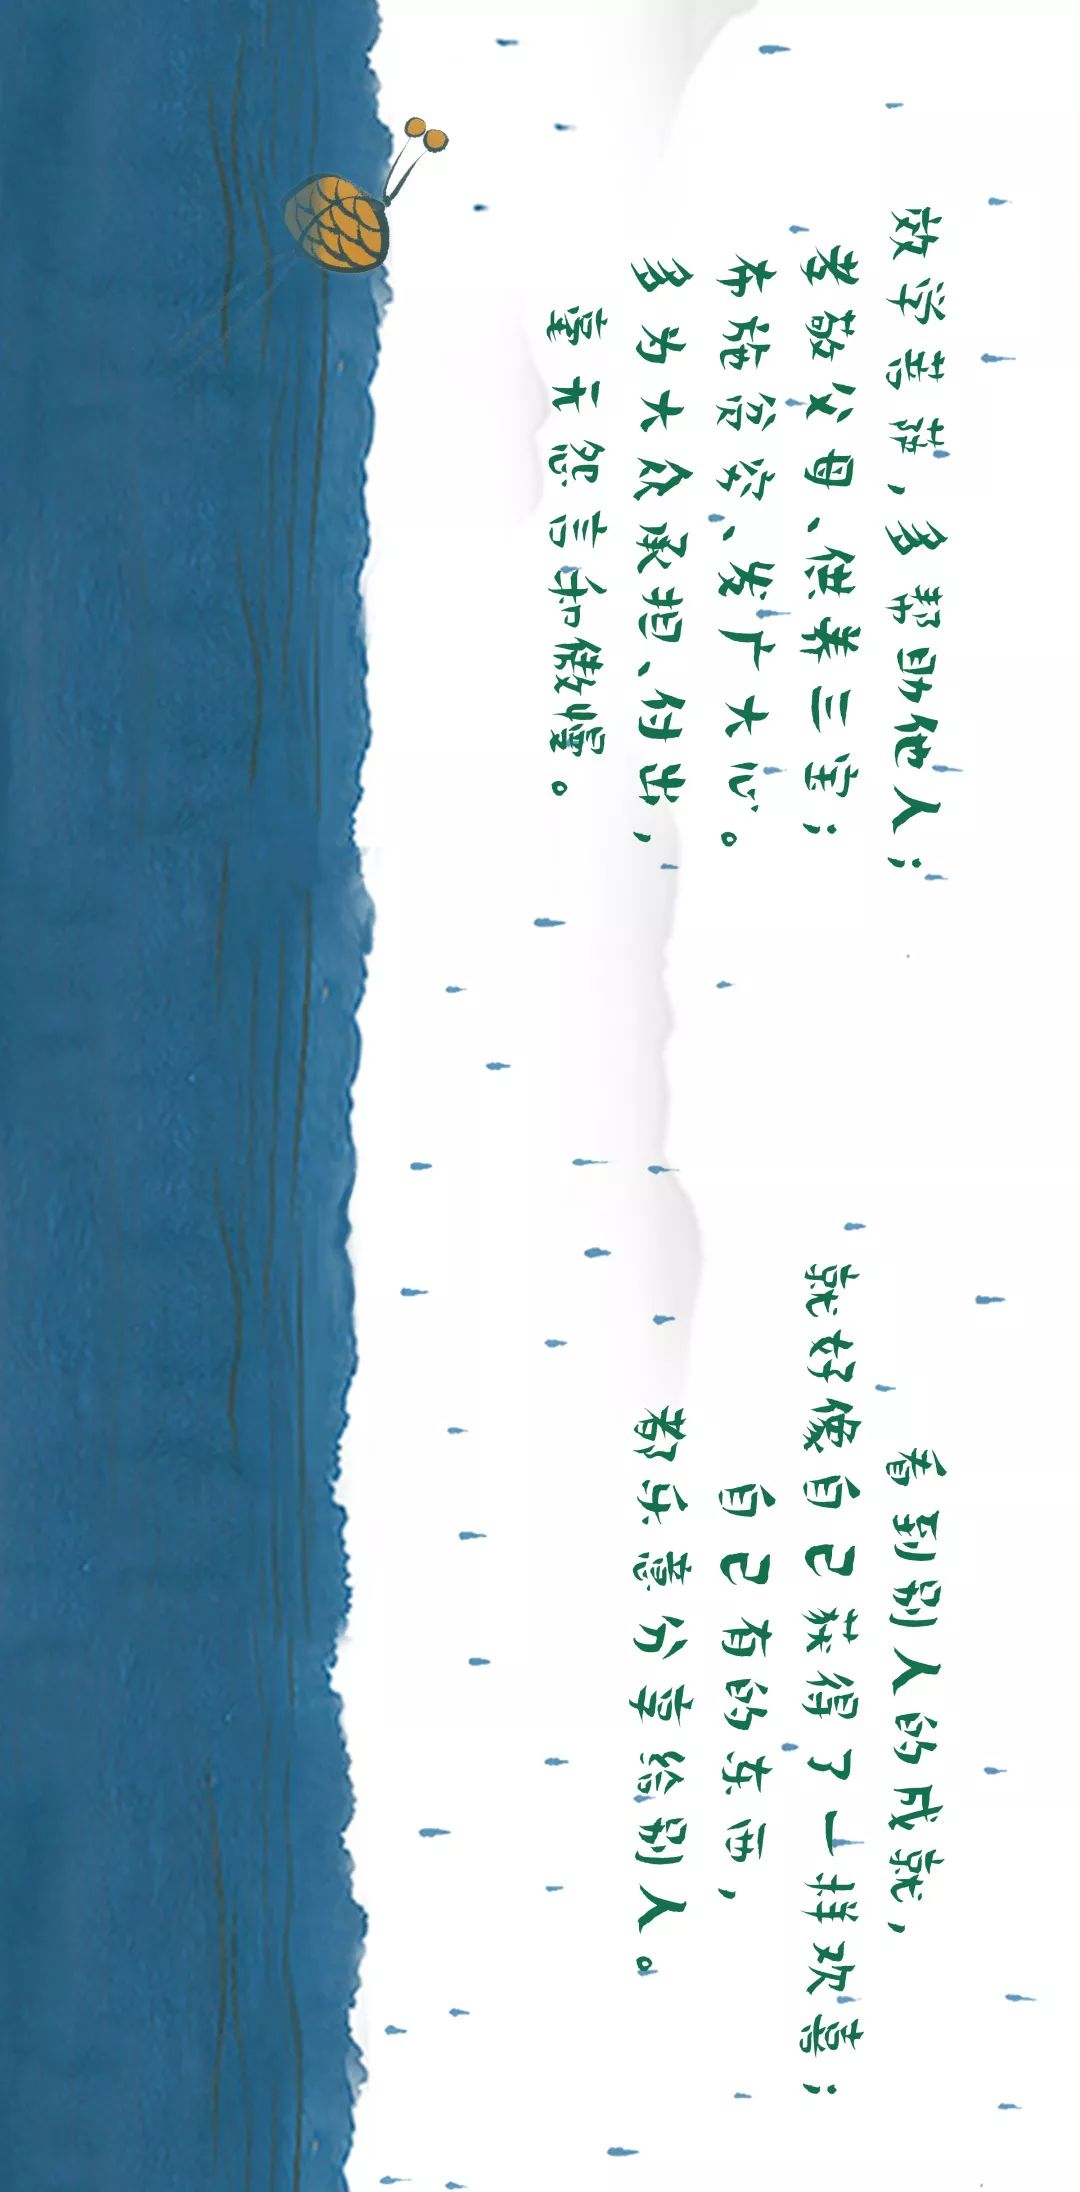 效学菩萨，多帮助他人；
孝敬父母、供养三宝；
布施贫穷、发广大心。
多为大众承担、付出，
毫无怨言和傲慢。
看到别人的成就，
就好像自己获得了一样欢喜；
自己有的东西，
都乐意分享给别人。